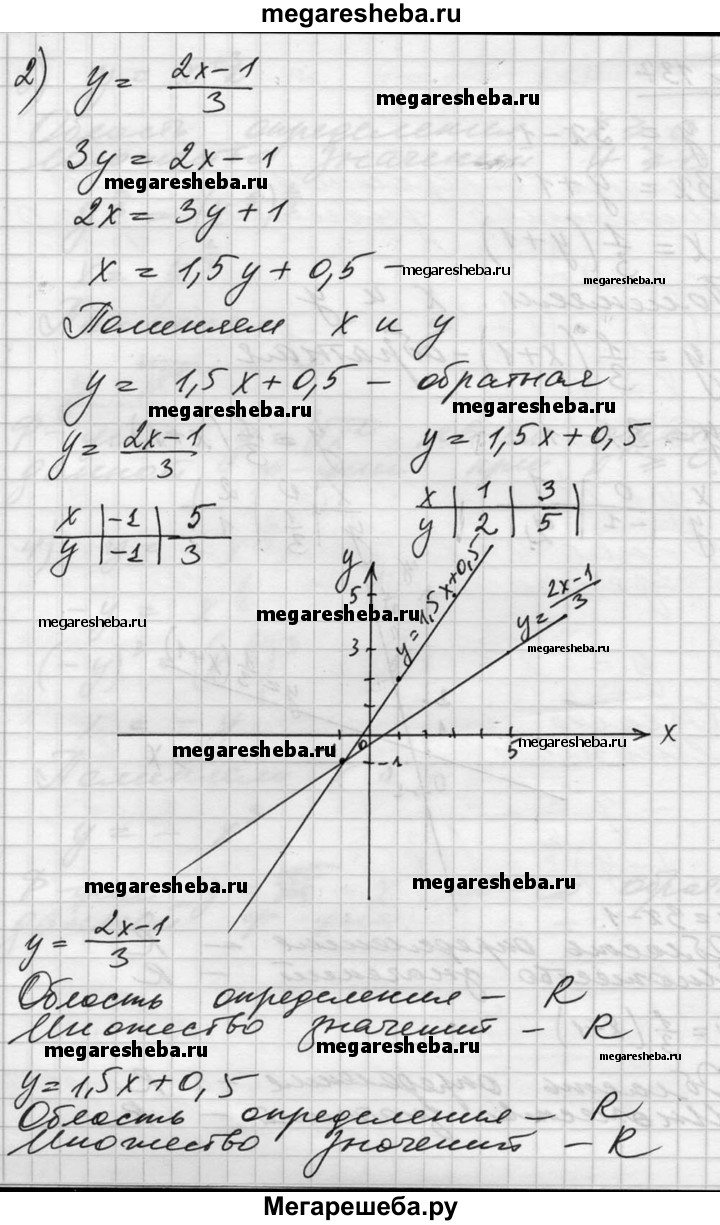 megaresheba.ru
2) y = (2x-1)/3
megaresheba.ru
3y = 2x - 1
megaresheba.ru
2x = 3y + 1
x = 1,5y + 0,5 -
megaresheba.ru megaresheba.ru
Поменяем x и y
y = 1,5x + 0,5 - обратная
megaresheba.ru megaresheba.ru
y = (2x-1)/3 y = 1,5x + 0,5
x | -1 | 5
y | -1 | 3
x | 1 | 3 |
y | 2 | 5 |
y
5
y=1,5x+0,5
y=(2x-1)/3
megaresheba.ru megaresheba.ru
3
megaresheba.ru
0 5 x
megaresheba.ru megaresheba.ru
-1
megaresheba.ru megaresheba.ru
y = (2x-1)/3
Область определения - R
Множество значений - R
megaresheba.ru megaresheba.ru megaresheba.ru
y = 1,5x + 0,5
Область определения - R
Множество значений - R
Мегарешеба.ру